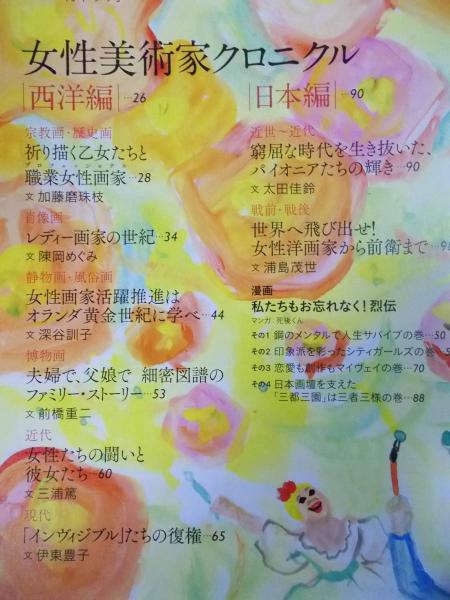 女性美術家クロニクル
西洋編 …26
宗教画・歴史画
祈り描く乙女たちと
プロフェッショナル
職業女性画家…28
文 加藤磨珠枝
肖像画
レディー画家の世紀…34
文 陳岡めぐみ
静物画・風俗画
女性画家活躍推進は
オランダ黄金世紀に学べ…44
文 深谷訓子
博物画
夫婦で、父娘で 細密図譜の
ファミリー・ストーリー…53
文 前橋重二
近代
女性たちの闘いと
彼女たち…60
文 三浦篤
現代
「インヴィジブル」たちの復権…65
文 伊東豊子
日本編 …90
近世〜近代
窮屈な時代を生き抜いた、
パイオニアたちの輝き…90
文 太田佳鈴
戦前・戦後
世界へ飛び出せ!
女性洋画家から前衛まで…
文 浦島茂世
漫画
私たちもお忘れなく! 烈伝
マンガ:死後くん
その1 鋼のメンタルで人生サバイブの巻…50
その2 印象派を彩ったシティガールズの巻…
その3 恋愛も創作もマイヴェイの巻…70
その4 日本画壇を支えた
「三都三園」は三者三様の巻…88